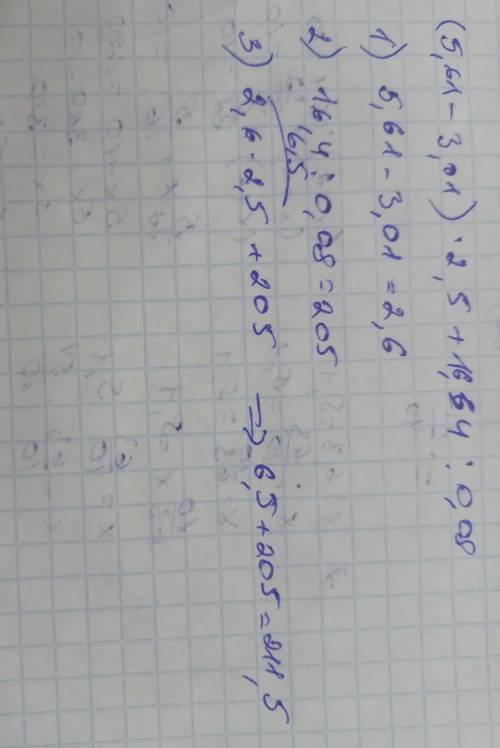 (5,61 - 3,01) · 2,5 + 16,4 : 0,08
1) 5,61 - 3,01 = 2,6
2) 16,4 : 0,08 = 205
6,5
3) 2,6 · 2,5 + 205 => 6,5 + 205 = 211,5